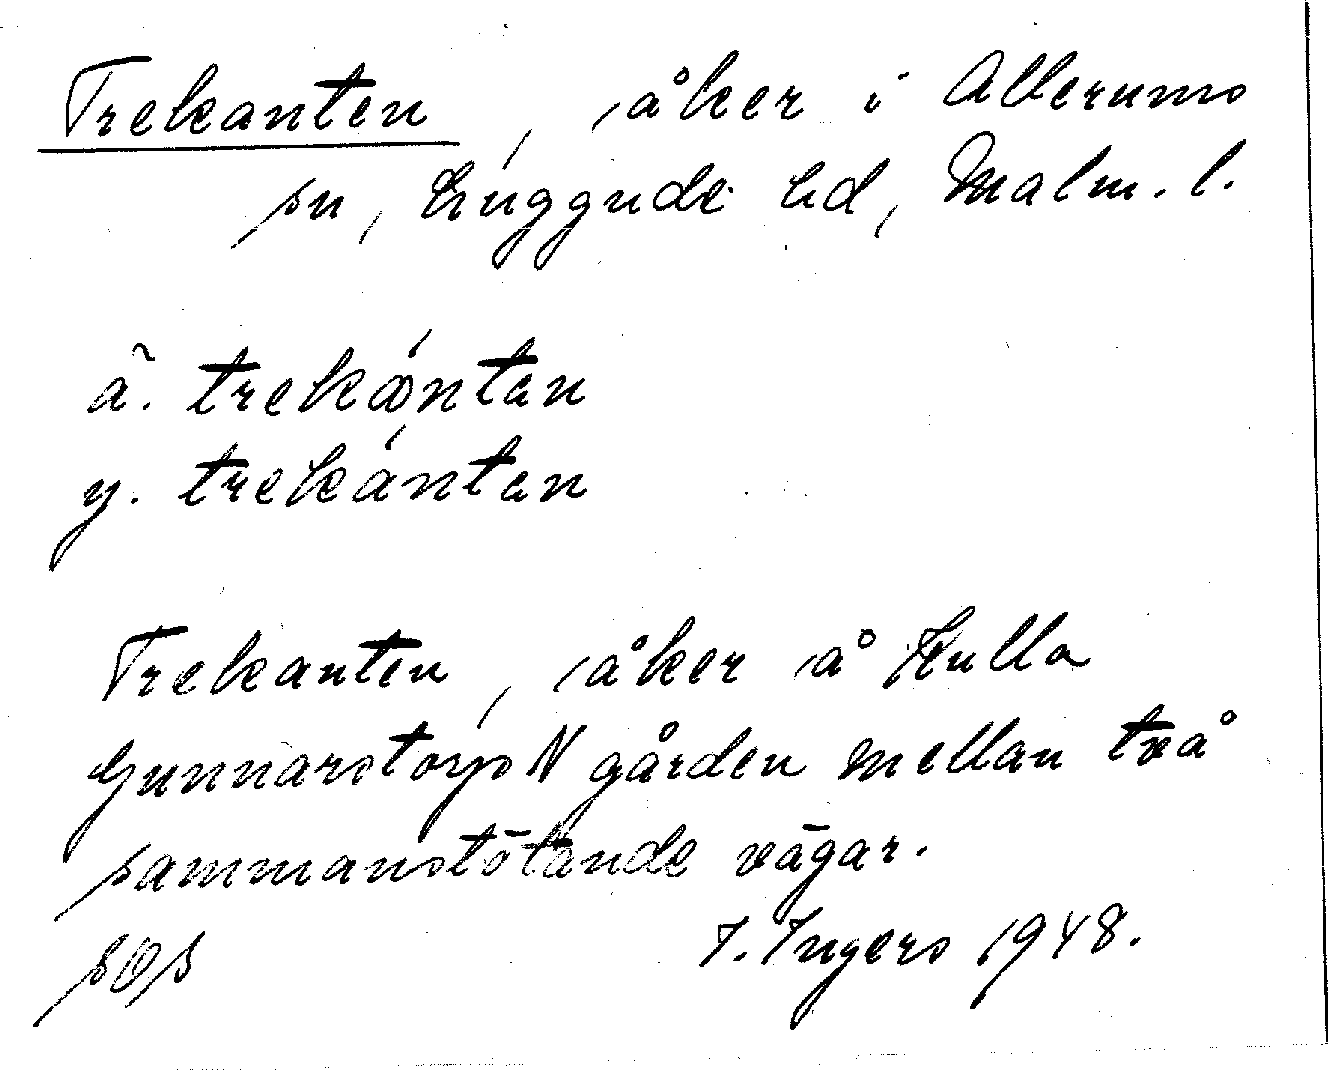 Trekanten, åker i Allerums
sn, Luggude hd, Malm. l.
ä. trekántan
y. trekántan
Trekanten, åker å Kulla
Gunnarstorp N gården mellan två
sammanstötande vägar.
I. Ingers 1948.